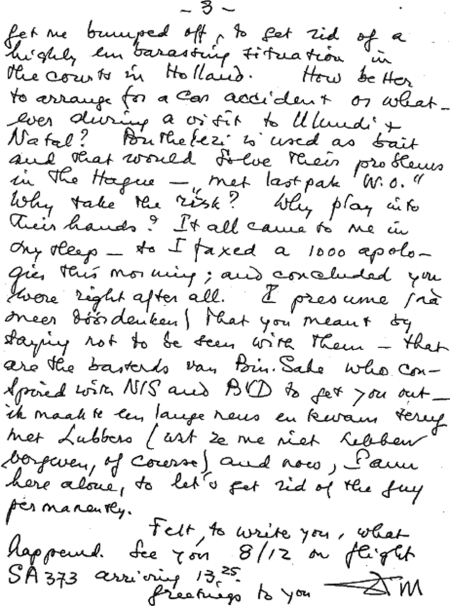 - 3 -
get me bumped off, to get rid of a
highly embarassing situation in
the courts in Holland. How better
to arrange for a car accident or what-
ever during a visit to Ulundi &
Natal? Buthelezi is used as bait
and that would solve their problems
in The Hague — "met lastpak W.O."
Why take the risk? Why play into
their hands? It all came to me in
my sleep — so I faxed a 1000 apolo-
gies this morning; and concluded you
were right after all. I presume (na
meer doordenken) that you meant by
saying not to be seen with them — that
are the basterds van Bin. Sake who con-
spired with NIS and BVD to get you out —
ik maakte een lange neus en kwam terug
met Lubbers (wat ze me niet hebben
vergeven, of course) and now, I am
here alone, to let's get rid of the guy
permanently.
Felt, to write you, what
happened. See you 8/12 on flight
SA373 arriving 13.25
greetings to you